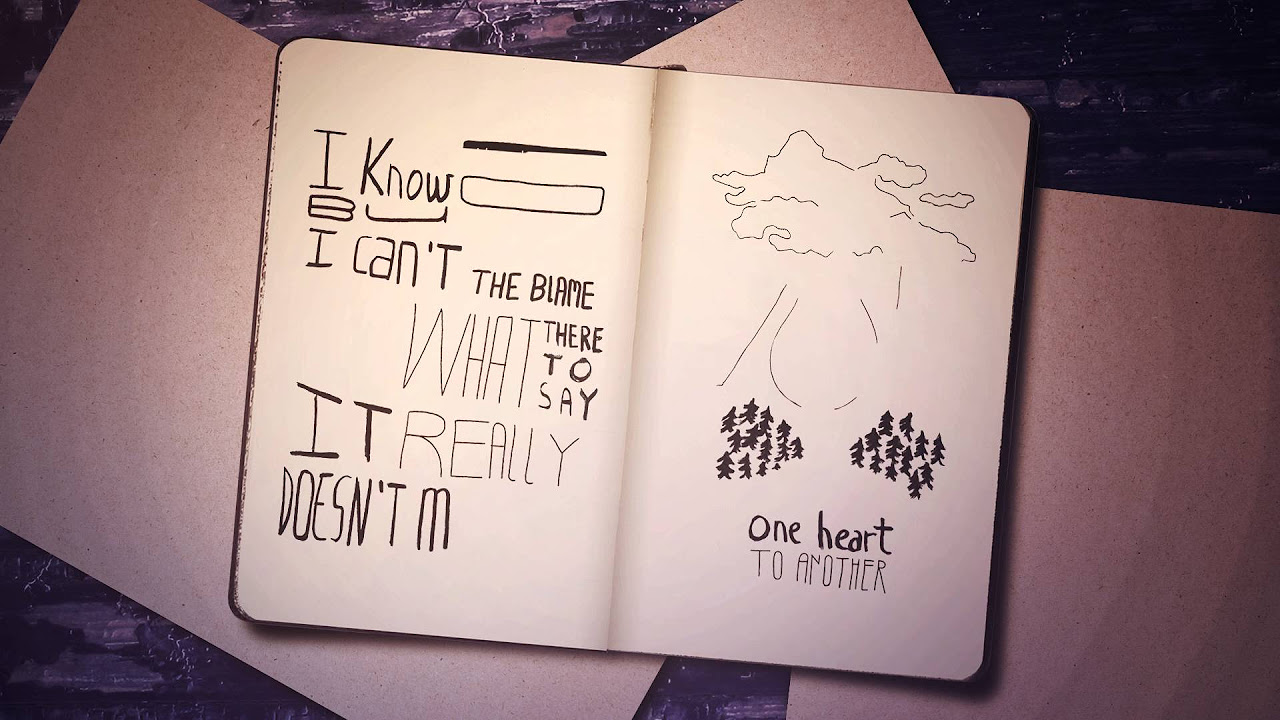 I Know
B
I can'T THE BLAME
WHAT THERE
TO
SAY
IT REALLY
DOESN'T M
One heart
TO ANOTHER